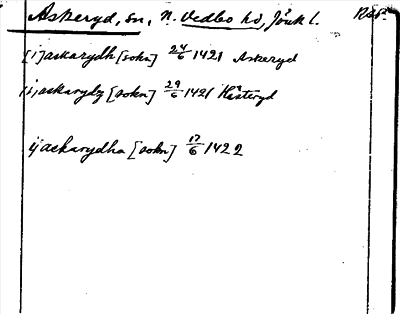 Askeryd, sn, N. Vedbo hd, Jönk l.
[i] askarydh [sokn] 24/6 1421 Askeryd
(i) askarydz [sokn] 29/6 1421
ij askarydha [sokn] 17/6 1422